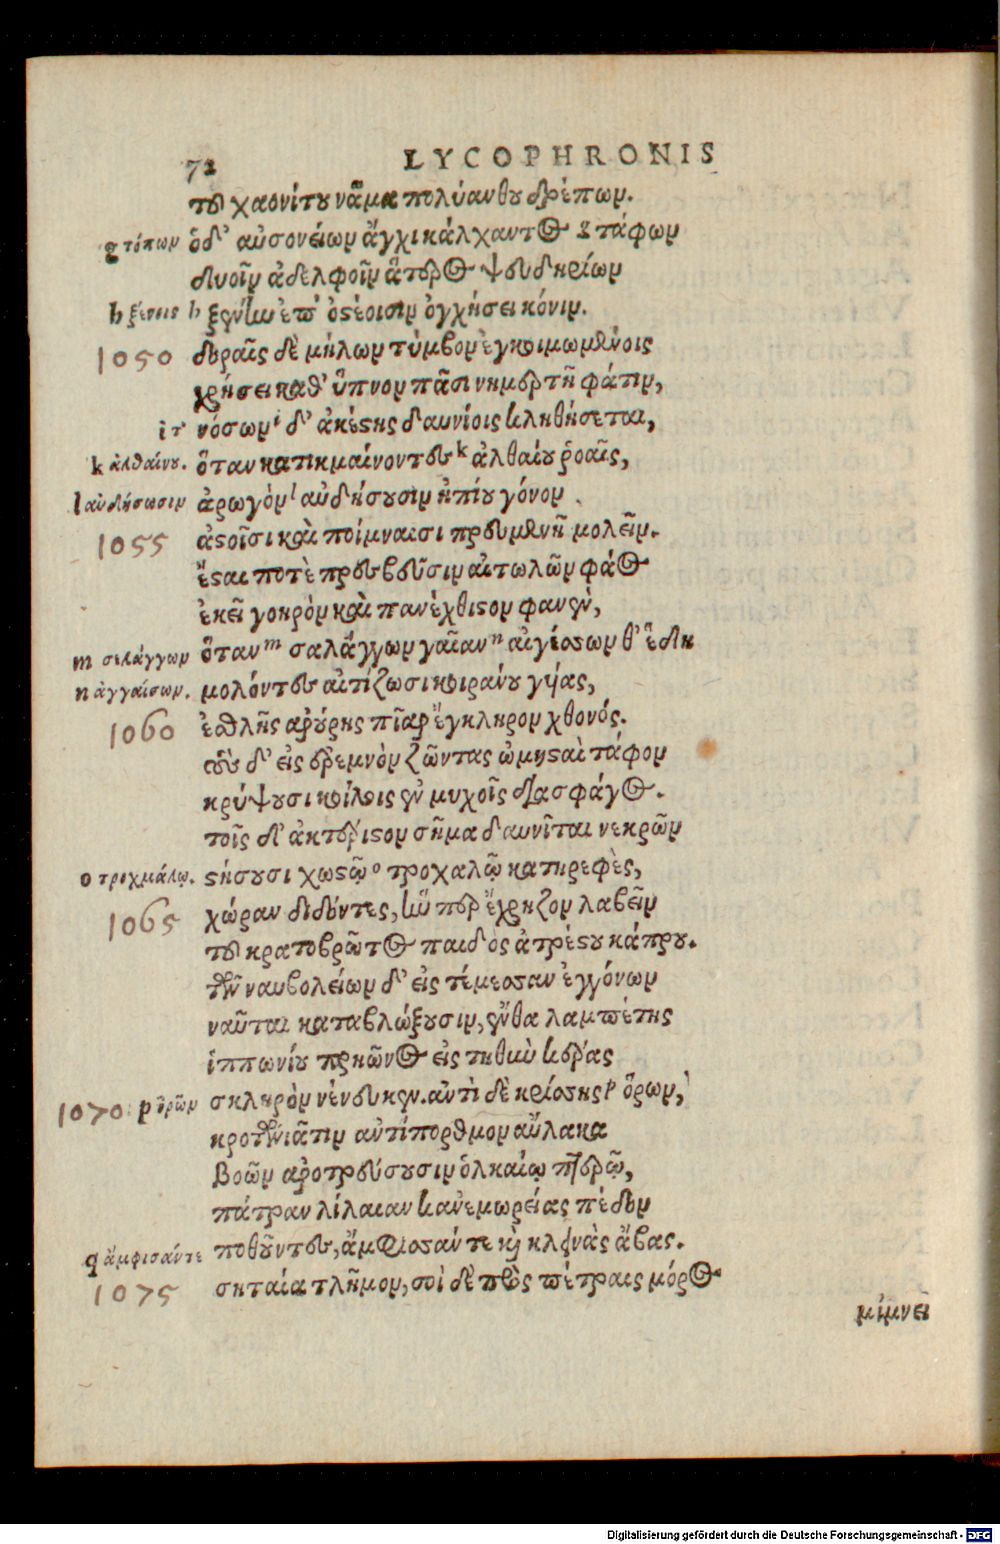 72 LYCOPHRONIS
τοῦ χαονίτου νᾶμα πολύανθου δρέπων.
g τόπων ὁδ' αὐσονείων ἄγχι κάλχαντος g τάφων
δυοῖν ἀδελφοῖν ἅτερος ψευδηρίων
h ξείνης h ξένην ἐπ' ὀστέοισιν ὀγχήσει κόνιν.
1050 δοραῖς δὲ μήλων τύμβον ἐγκοιμωμένοις
χρήσει καθ' ὕπνον πᾶσι νημερτῆ φάτιν,
i τ' νόσων i δ' ἀκέστης δαυνίοις κληθήσεται,
k ἀλθαίνου. ὅταν κατικμαίνοντες k ἀλθαίου ῥοαῖς,
l αὐδήσωσιν ἀρωγὸν l αὐδήσουσιν ἠπίου γόνον
1055 ἀστοῖσι καὶ ποίμναισι πρευμενῆ μολεῖν.
ἔσται ποτὲ πρεσβεῦσιν αἰτωλῶν φάος
ἐκεῖ γοηρὸν καὶ πανέχθιστον φανέν,
m σιλάγγων ὅταν m σαλάγγων γαῖαν n αἰγέοσων θ' ἕδη
n ἀγγαίσων. μολόντες αἰτίζωσι κοιράνου γύας,
1060 ἐσθλῆς ἀρούρης πῖαρ ἔγκληρον χθονός.
τοὺς δ' εἰς ἐρεμνὸν ζῶντας ὠμησταὶ τάφον
κρύψουσι κοίλοις ἐν μυχοῖς διασφάγος.
τοῖς δ' ἀκτέριστον σῆμα δαυνῖται νεκρῶν
ο τροχμάλῳ. στήσουσι χωστῷ ο τροχαλῷ κατηρεφὲς,
1065 χώραν διδόντες, ἥν περ ἔχρηζον λαβεῖν
τοῦ κρατοβρῶτος παιδὸς ἀτρέστου κάπρου.
τῶν ναυβολείων δ' εἰς τέμεσσαν ἐγγόνων
ναῦται καταβλώξουσιν, ἔνθα λαμπέτης
ἱππωνίου πρηῶνος εἰς τηθὺν κέρας
1070 p ὀρῶν σκληρὸν νένευκεν. ἀντὶ δὲ κρίσσης p ὅρων,
κροτωνιᾶτιν ἀντίπορθμον αὔλακα
βοῶν ἀροτρεύσουσιν ὁλκαίῳ πτερῷ,
πάτραν λίλαιαν κἀνεμωρείας πέδον
q ἀμφισάντε ποθοῦντες, ἄμφισσάν τε καὶ κλεινὰς ἄβας.
1075 σηταία τλῆμον, σοὶ δὲ πρὸς πέτραις μόρος
μίμνει
Digitalisierung gefördert durch die Deutsche Forschungsgemeinschaft - DFG